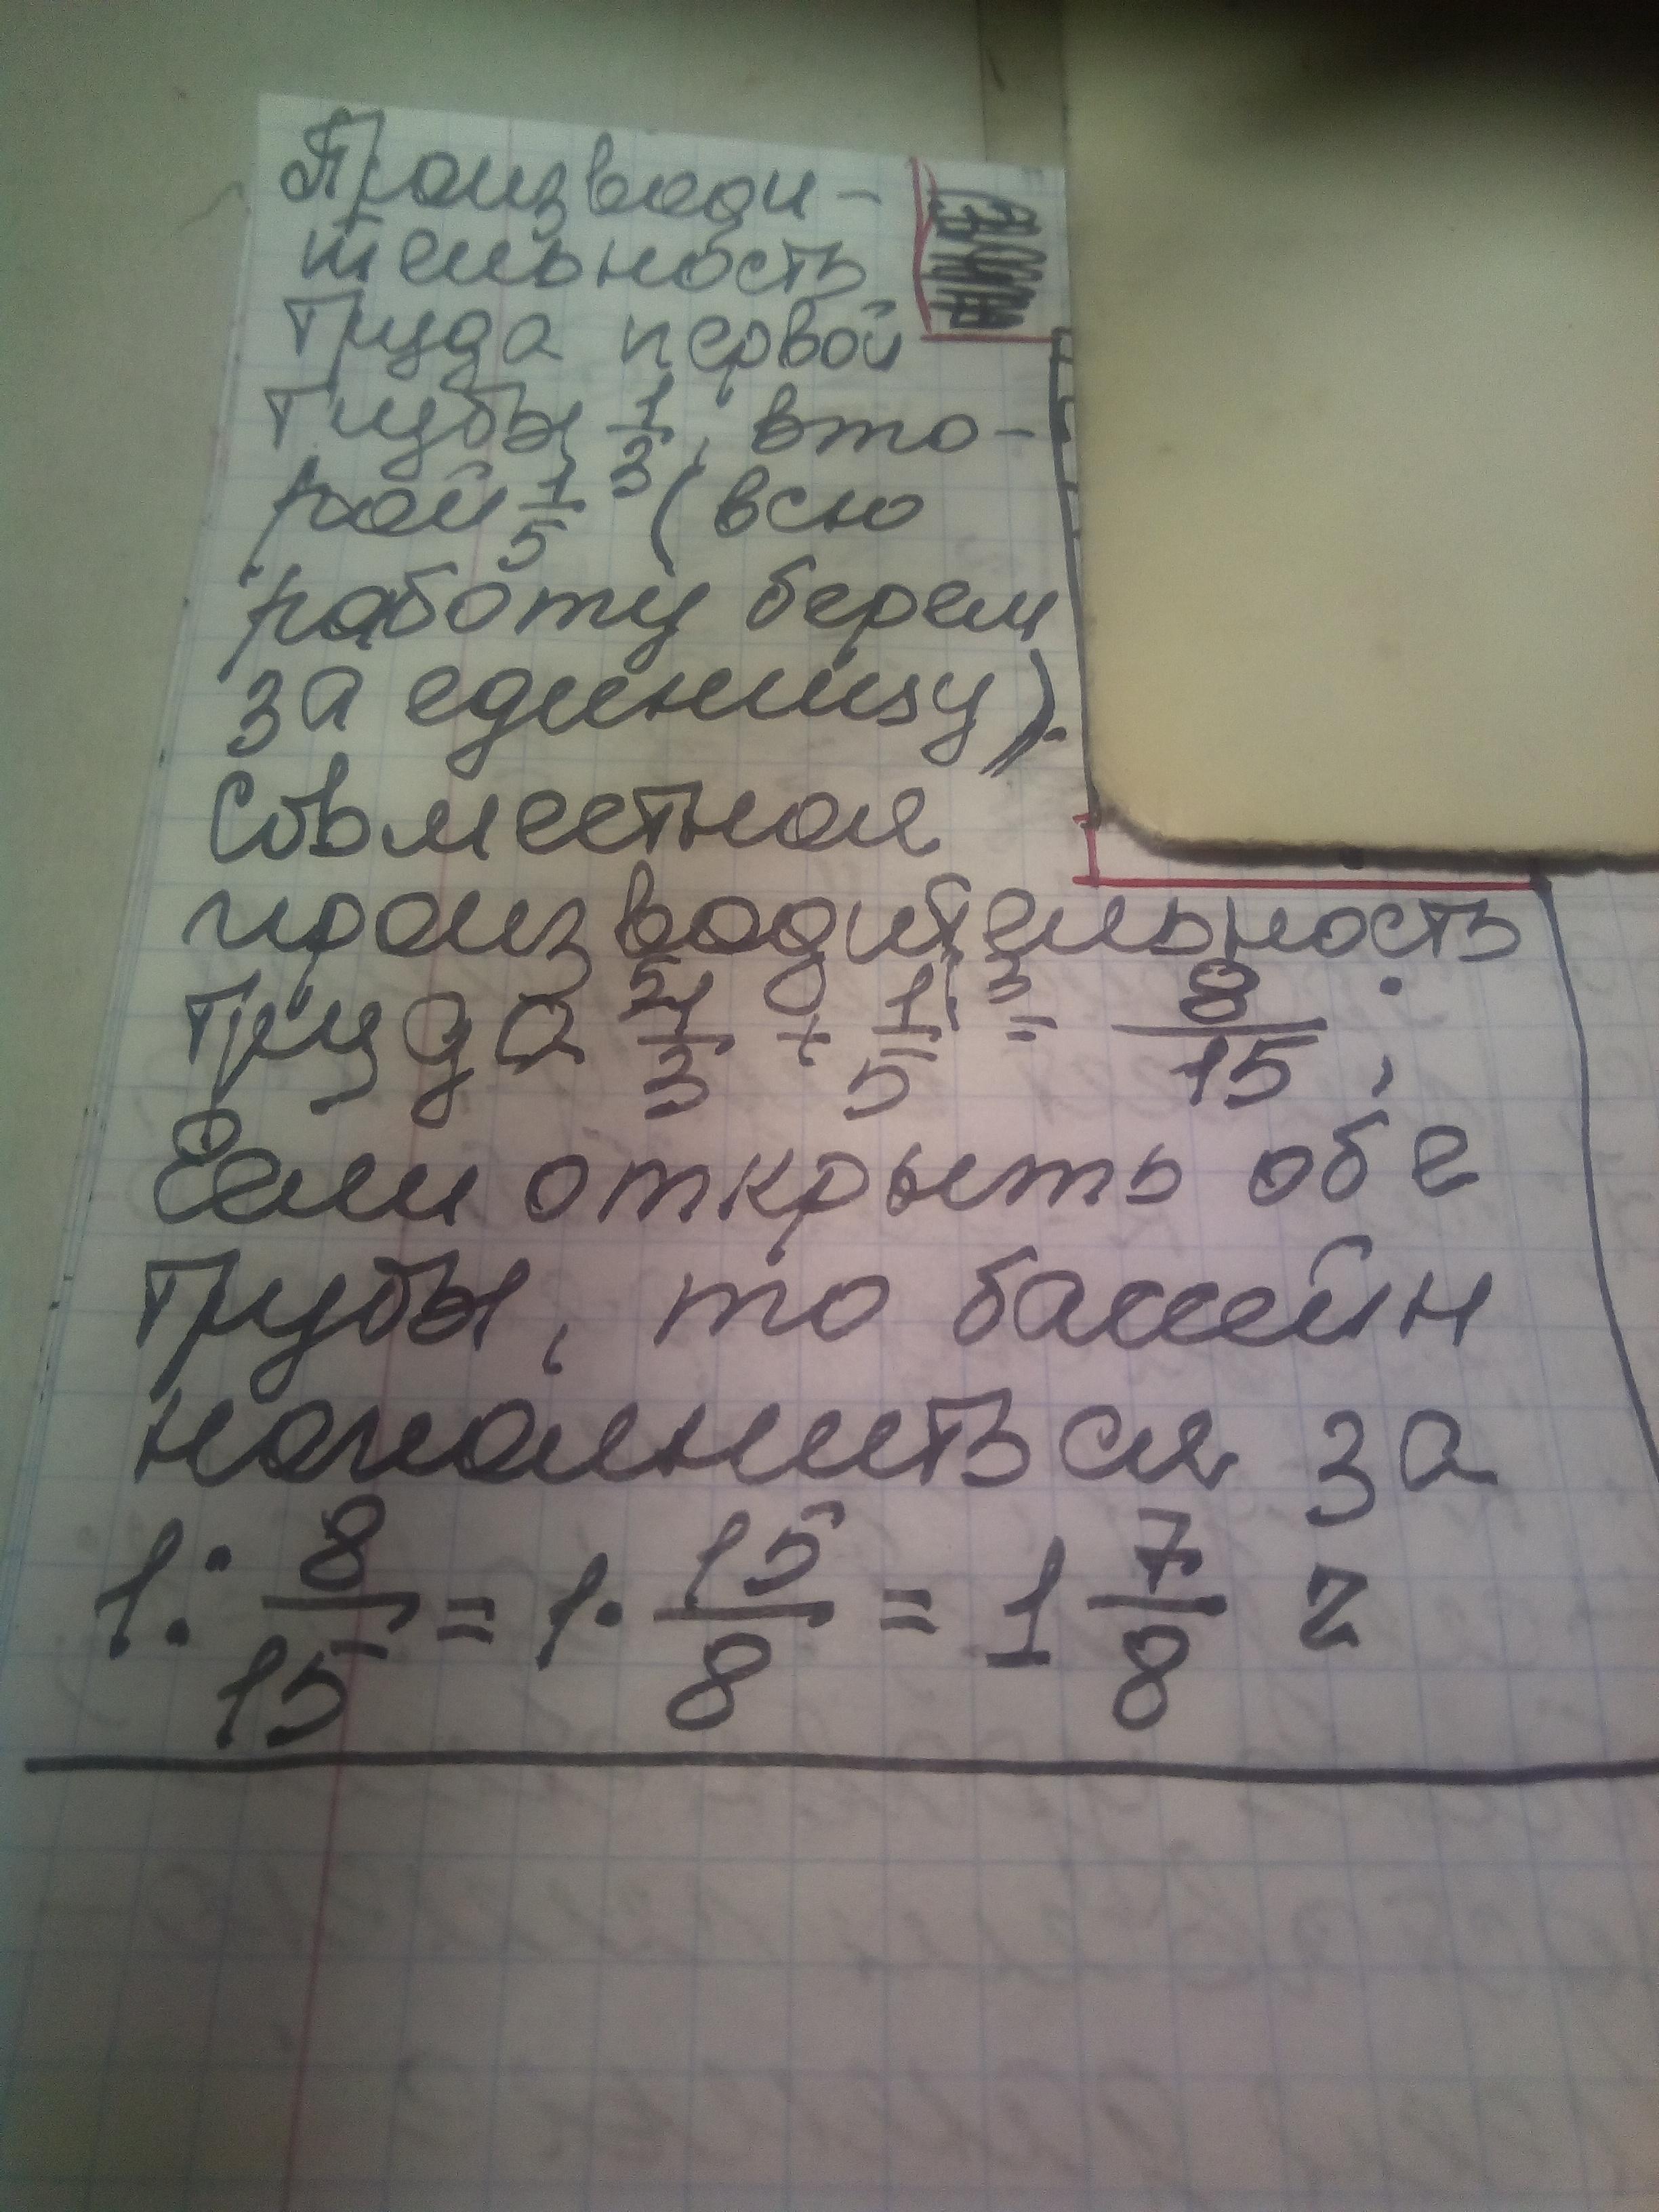 Производи-
тельность
труда первой
трубы 1/3, вто-
рой 1/5 (всю
работу берем
за единицу).
Совместная
производительность
труда 1/3 + 1/5 = 8/15;
Если открыть обе
трубы, то бассейн
наполниться за
1: 8/15 = 1· 15/8 = 1 7/8 ч